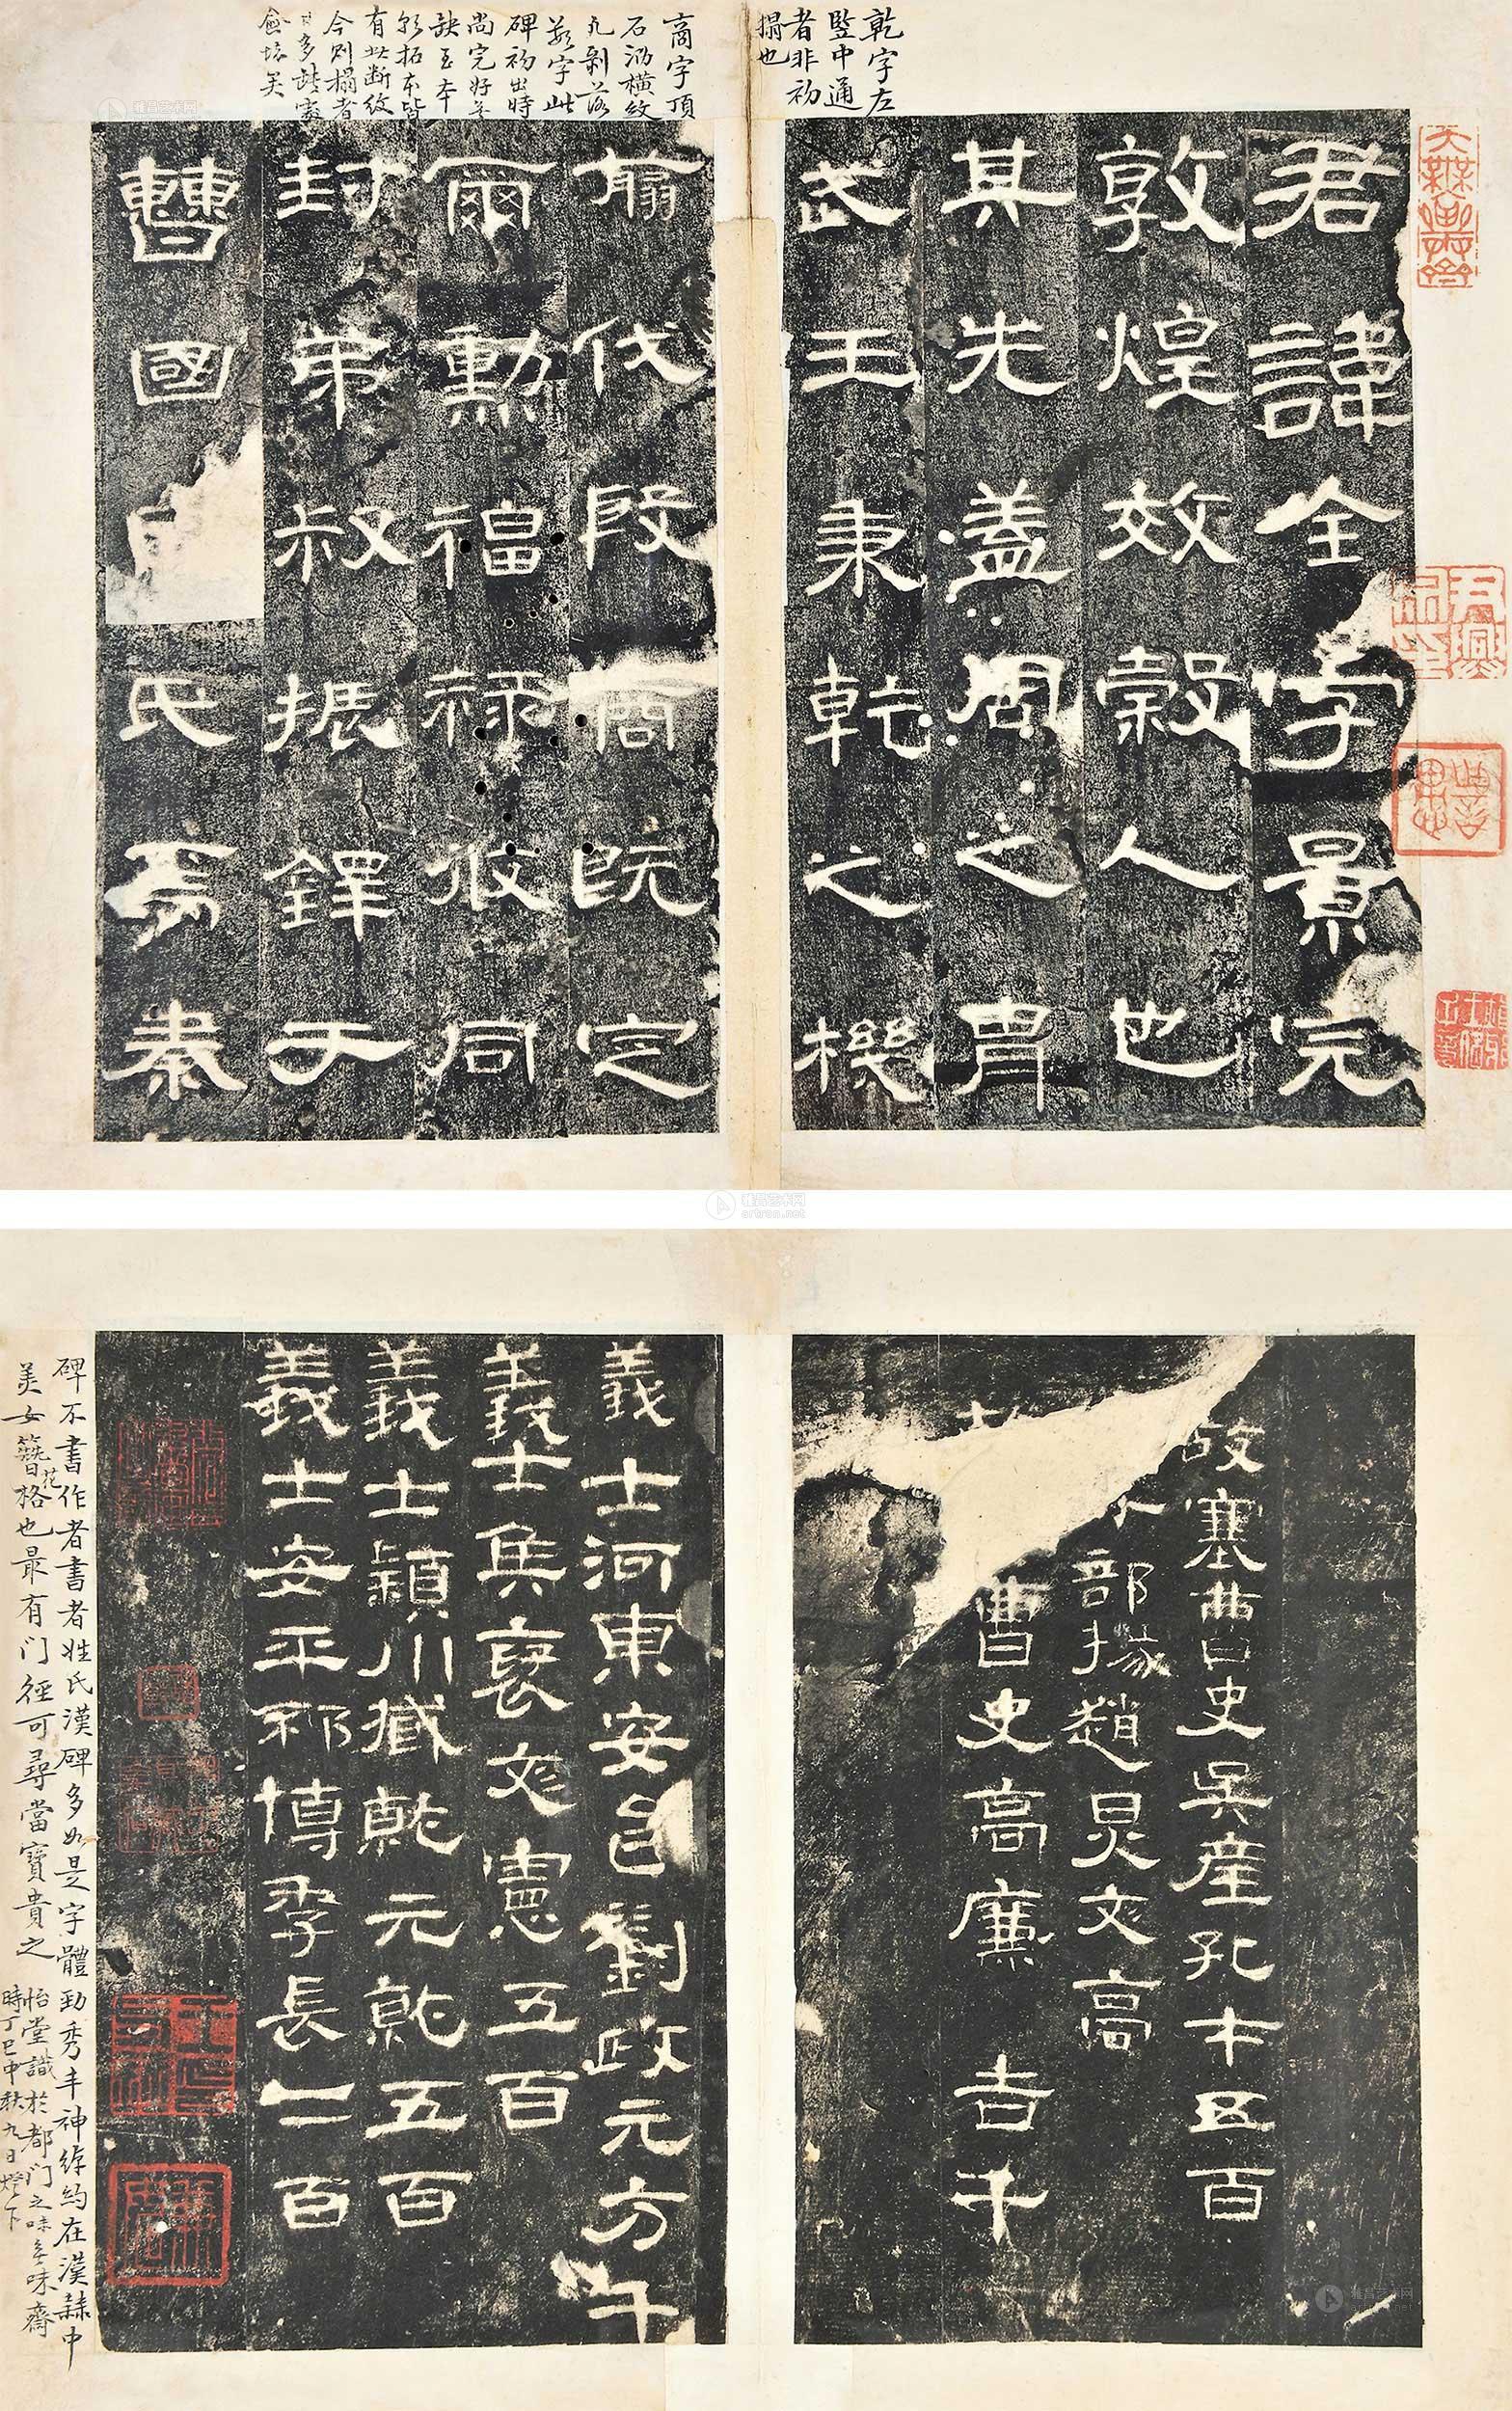 乾字左
豎中通
者非初
搨也
君諱全字景完
敦煌效穀人也
其先蓋周之胄
武王秉乾之機
商字頂
石泐橫紋
九剝落
碑初出時
尚完好
缺至本
拓本皆
有此斷紋
今則搨者
翦伐殷商既定
爾勳福祿攸同
封弟叔振鐸于
曹國
氏焉秦
故塞曹史吳產孔才五百
部掾趙炅文高
曹史高廉 吉千
義士河東安邑劉政元方千
義士侯襃文憲五百
義士潁川臧就元就五百
義士安平祁博季長二百
碑不書作者書者姓氏漢碑多如是字體勁秀丰神綽約在漢隸中
美女簪花格也最有门徑可尋當寶貴之
怡堂識於都门之味無味齋
時丁巳中秋九日燈下
雅昌艺术网
artron.net